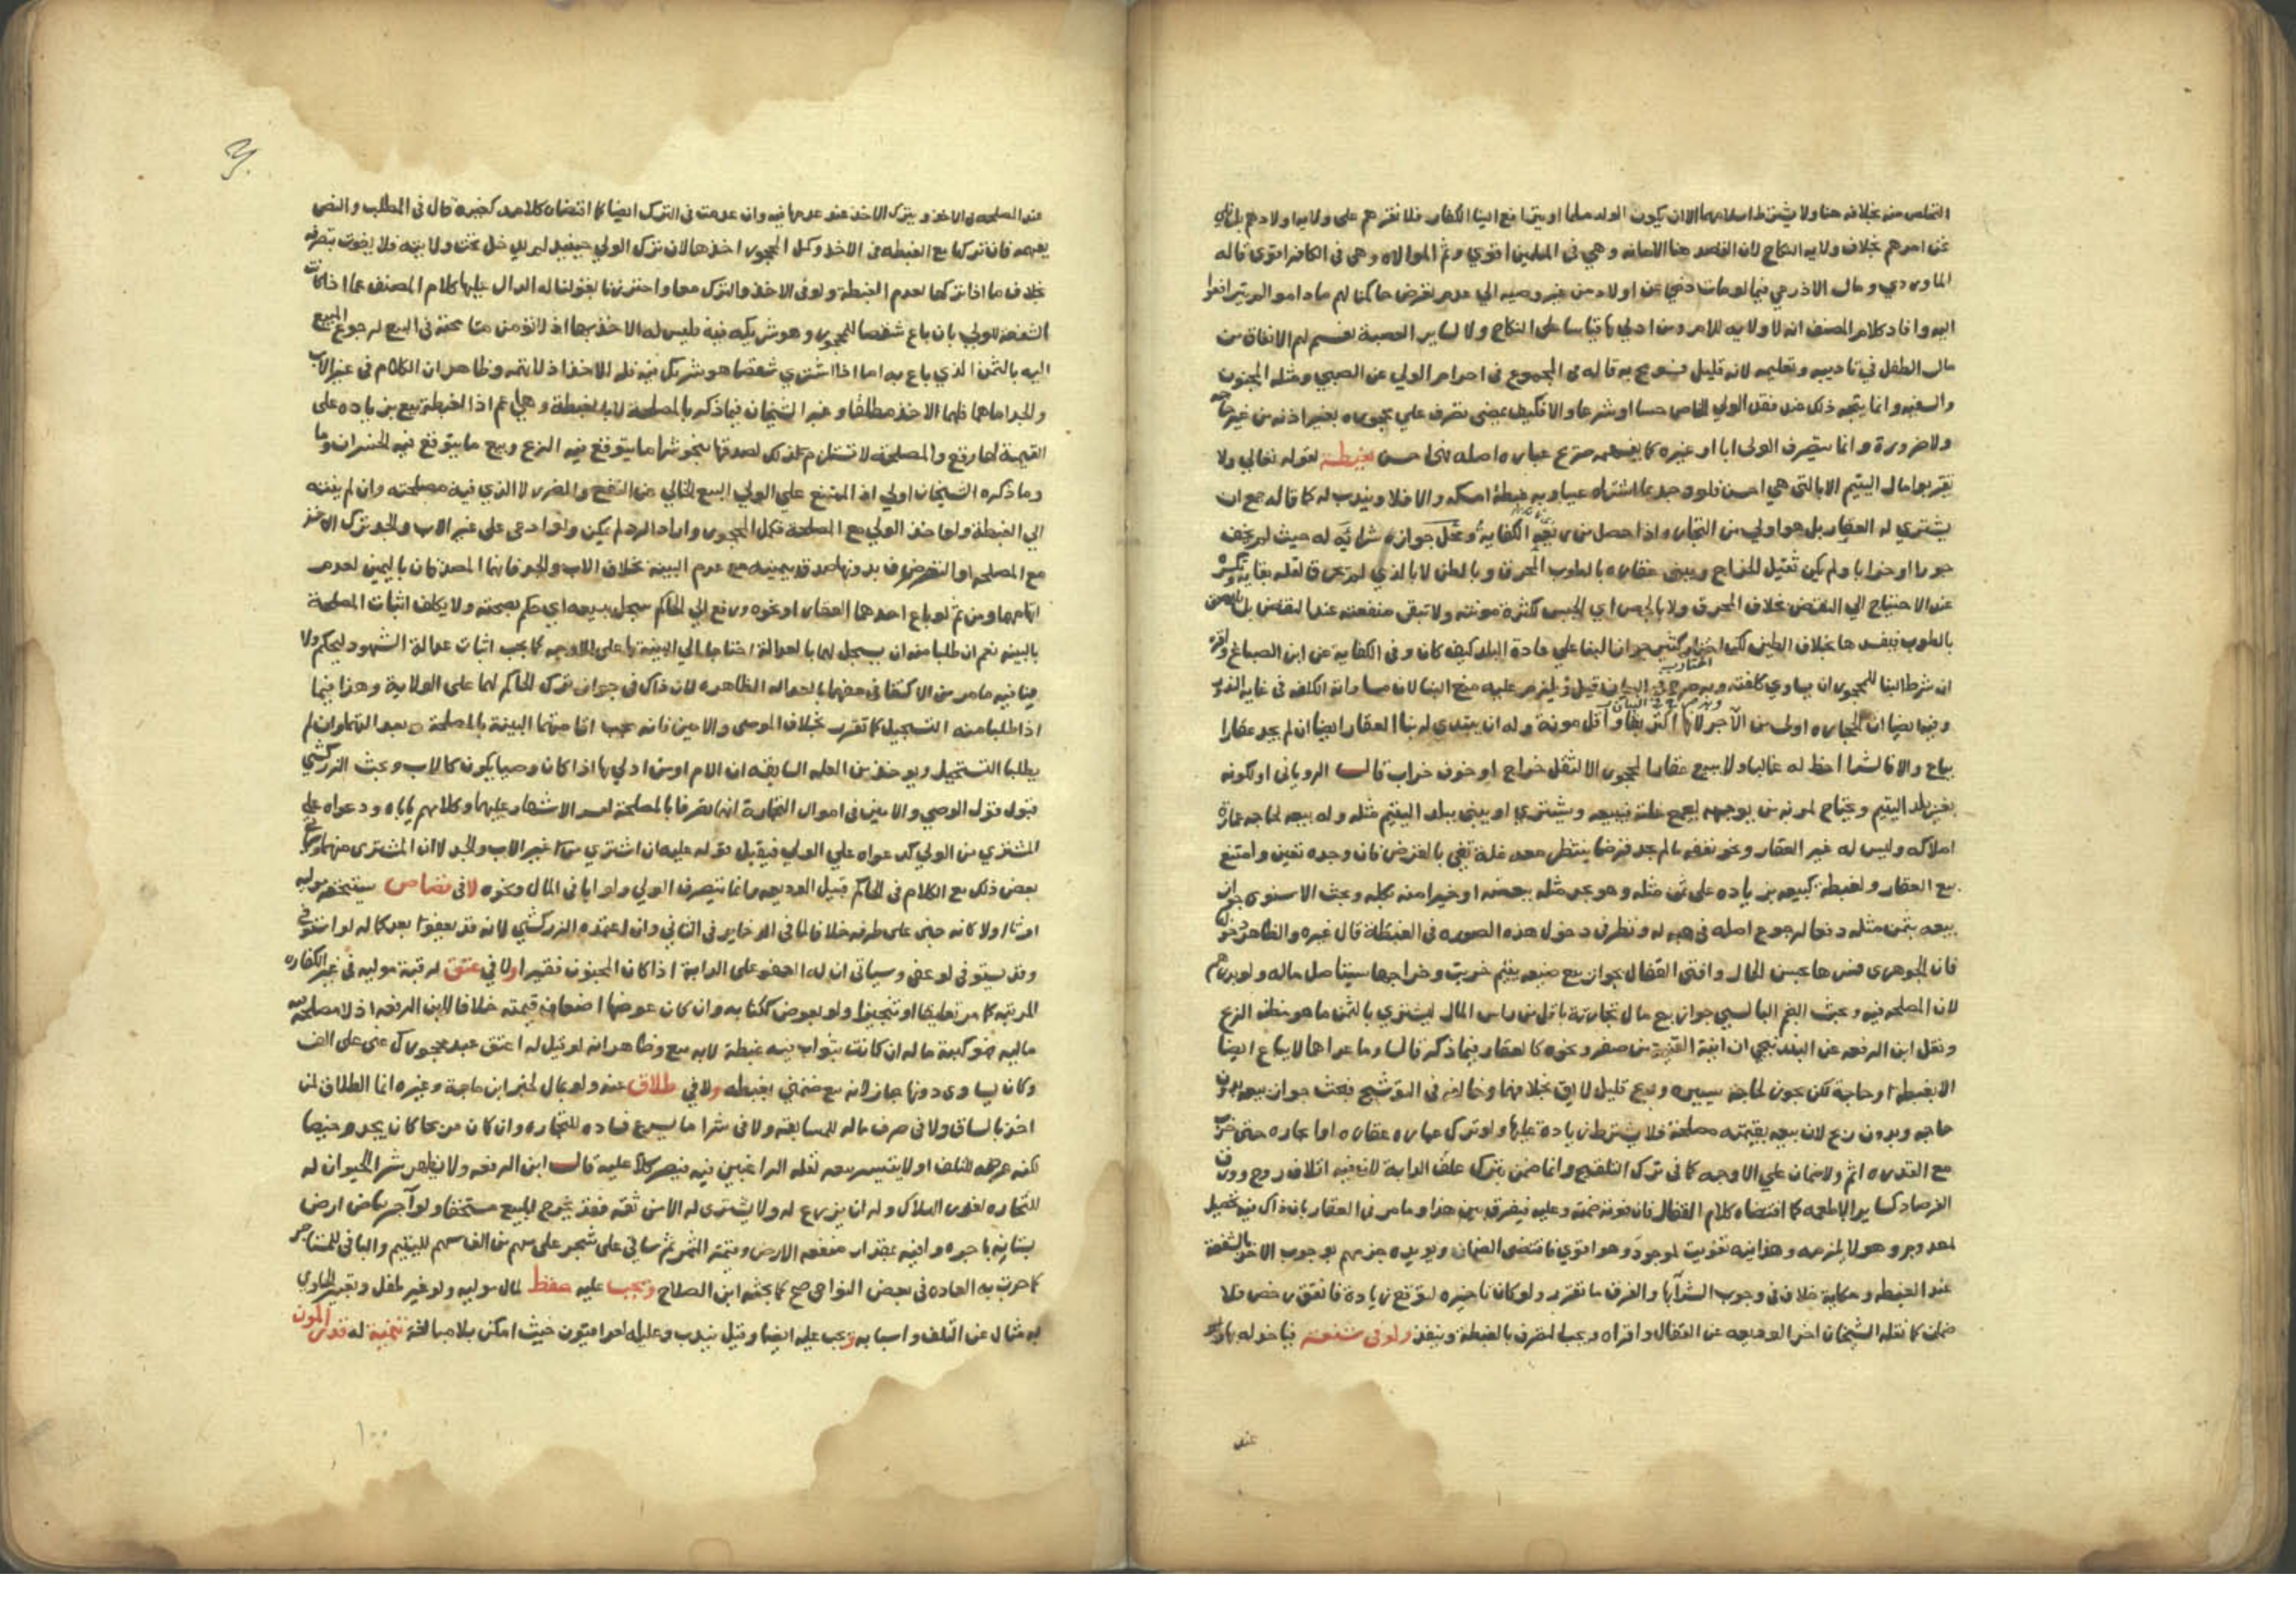 منه بخلافه هنا ولا يشترط اسلامهما الا ان يكون الولد مسلما او يترافع الينا الكفار فلا نقرهم على ولايه اولادهم
عن امرهم بخلاف ولايه النكاح لان القصد هنا الامانه وهي في المسلمين اقوي وثم الموالاه وهي في الكافر اقوي قاله
الماوردي وقال الاذرعي فيما لو مات ذمي عن اولاد من غير وصيه الي عدم تعرض حاكمنا لهم ما داموا لم يترافعوا
اليه وافاد كلام المصنف انه لا ولايه للام ومن ادلي بها قياسا على النكاح ولا لساير العصبة نعم لهم الانفاق من
مال الطفل في تاديبه وتعليمه لانه قليل فسومح به قاله في المجموع في احرام الولي عن الصبي ومثله المجنون
والسفيه وانما يتجه ذلك عند فقد الولي الخاص حسا او شرعا والا فكيف يمضى تصرف على محجوره بغير اذنه من غير حاجه
ولا ضرورة وانما يتصرف الولى ابا او غيره كما يفهمه عباره اصله بغبطة لقوله تعالي ولا
تقربوا مال اليتيم الا بالتي هي احسن فلو وجد ما اشتراه معيبا وبه غبطة امسكه والا فلا ويندب له كما قاله جمع ان
يشتري له العقار بل هو اولي من التجاره اذا حصل من ريعه الكفايه ومحل جواز شرايه له حيث لم يخف
جورا او خرابا ولم يكن ثقيل الخراج ويبني عقاره بالطوب المحرق وبالطين لا بالذي لم يحرق لقلة بقايه
عند الاحتياج الي النقض بخلاف المحرق ولا بالجص اي الجبس لكثرة مونته ولا تبقى منفعته عند النقض بل يلصق
بالطوب فيفسدها بخلاف الطين لكن اختار كثير جواز البنا على عادة البلد كيف كان وفي الكفايه عن ابن الصباغ
ان شرط البنا للمحجور ان يساوي كلفته قيل ويلزم عليه منع البنا لان مساواته لكلفه في غايه الندور
وفيها ايضا ان الحجاره اولى من الآجر لانها اكثر بقا واقل مونة وله ان يبتدي له بنا العقار ايضا ان لم يجد عقارا
يباع والا فالشرا احظ له غالبا ولا يبيع عقار المحجور الا لثقل خراج او خوف خراب قال الروياني او لكونه
بغير بلد اليتيم ويحتاج لمونه من يوجهه لجمع غلته فيبيعه ويشتري او يبني ببلد اليتيم مثله وله بيعه لحاجه عمارة
املاكه وليس له غير العقار ونحو نفقه ما لم يجد قرضا ينتظر معه غلة تفي بالقرض فان وجده تعين وامتنع
بيع العقار ولغبطة كبيعه بزياده على ثمن مثله وهو يجد مثله ببعضه او خيرا منه بكله وبحث الاسنوي جواز
بيعه بثمن مثله دفعا لرجوع اصله في هبه له ونظر في دخول هذه الصوره في الغبطة قال غيره والظاهر دخولها
فان الجوهري فسرها بحسن الحال وافتى القفال بجواز بيع ضيعه يتيم خربت وخراجها يستاصل ماله ولو بدرهم
لان المصلحه فيه وبحث النجم البالسي جواز بيع مال تجارته باقل من راس المال ليشتري بالثمن ما هو مظنه الربح
ونقل ابن الرفعه عن البندنيجي ان انية القنية من صفر ونحوه كالعقار فيما ذكر قال وما عداها لا يباع ايضا
الا لغبطة او حاجه لكن يجوز لحاجه يسيره وربح قليل لايق بخلافهما وخالفه في التوشيح فبحث جواز بيعه بدون
حاجه وبدون ربح لان بيعه بقيمته مصلحة فلا يشترط زيادة عليها ولو ترك عماره عقاره او ايجاره حتى خرب
مع القدره اثم ولا ضمان على الاوجه كما في ترك التلقيح وانما ضمن بترك علف الدابة لان فيه اتلاف روح وورق
الفرصاد كساير الاطعمه كما اقتضاه كلام القفال فان فوته ضمنه وعليه فيفرق بين هذا وما مر في العقار بان ذاك فيه تحصيل
لمعدوم وهو لا يلزمه وهذا فيه تفويت لموجود وهو اقوي فاقتضى الضمان ويويده جزمهم بوجوب الاخذ بالشفعة
عند الغبطه وحكاية خلاف في وجوب الشرآ بها والفرق ما تقرر ولو كان تاخيره لتوقع زيادة فاتفق رخص فلا
ضمان كما نقله الشيخان اخر الوديعه عن القفال واقراه ويجب التصرف بالغبطة وينفذ ولو في شفعة فياخذ له بها
عند
عند المصلحه في الاخذ ويترك الاخذ عند عدمها فيه وان عدمت في الترك ايضا كما اقتضاه كلامه كغيره قال في المطلب والنص
يفهمه فان تركها مع الغبطه في الاخذ وكمل المحجور اخذها لان ترك الولي حينيذ لم يدخل تحت ولايته فلا يفوت بتصرفه
بخلاف ما اذا تركها لعدم الغبطة ولو في الاخذ والترك معا واحترزنا بقولنا له الدال عليها كلام المصنف عما اذا كانت
الشفعة للولي بان باع شقصا للمحجور وهو شريكه فيه فليس له الاخذ بها اذ لا تؤمن مسامحته في البيع لرجوع المبيع
اليه بالثمن الذي باع به اما اذا اشتري شقصا هو شريك فيه فله الاخذ اذ لا تهمه وظاهر ان الكلام في غير الاب
والجد اما هما فلهما الاخذ مطلقا وعبر الشيخان فيما ذكر بالمصلحة لا بالغبطة وهي اعم اذ الغبطة بيع بزياده على
القيمة لها وقع والمصلحة لا تستلزم ذلك لصدقها بنحو شرا ما يتوقع فيه الربح وبيع ما يتوقع فيه الخسران
وما ذكره الشيخان اولي اذ الممتنع على الولي البيع الخالي عن النفع والضرر لا الذي فيه مصلحته وان لم ينته
الي الغبطة ولو اخذ الولي مع المصلحة فكمل المحجور واراد الرد لم يكن ولو ادعى على غير الاب والجد ترك الاخذ
مع المصلحه او التصرف بدونها صدق بيمينه مع عدم البينه بخلاف الاب والجد فانهما المصدقان باليمين لعدم
اتهامهما ومن ثم لو باع احدهما العقار او نحوه ورفع الي الحاكم سجل بيعه اي حكم بصحته ولا يكلف اثبات المصلحة
بالبينه نعم ان طلبا منه ان يسجل لهما بالعدالة احتاجا الي البينة بها على الاوجه كما يجب اثبات عدالة الشهود ليحكم ولا
ينافيه ما مر من الاكتفا في حقهما بالعداله الظاهره لان ذاك في جواز ترك الحاكم لهما على الولاية وهذا فيما
اذا طلبا منه التسجيل كما تقرر بخلاف الوصي والامين فانه يجب اقامتهما البينة بالمصلحة
يطلبا التسجيل ويوخذ من العله السابقه ان الام او من ادلي بها اذا كان وصيا يكون كالاب وبحث الزركشي
قبول قول الوصي والامين في اموال التجارة انهما تصرفا بالمصلحة لعسر الاشهاد عليهما وكلامهم ياباه ودعواه على
المشتري من الولي كدعواه على الولي فيقبل قوله عليه ان اشتري من غير الاب والجد لا ان المشتري منهما
بعض ذلك مع الكلام في الحاكم قبيل الوديعه وانما يتصرف الولي ولو ابا في المال ونحوه لا في قصاص يستحقه موليه
ارثا او لكونه جنى على طرفه خلافا لما في الذخاير في الثاني وان اعتمده الزركشي لانه قد يعفوا بعد كماله لو استوفي
وقد يستوفي لو عفي وسياتي ان له العفو على الدية اذا كان المجنون فقيرا ولا في عتق لرقبة موليه في غير الكفاره
المرتبه كما مر تعليقا او تنجيزا ولو بعوض ككتابه وان كان عوضها اضعاف قيمته خلافا لابن الرفعه اذ لا مصلحه
ماليه فيه كهبة ماله ان كانت بثواب فيه غبطة لانه بيع وظاهر انه لو قيل له اعتق عبد محجورك عني على الف
وكان يساوي دونها جاز لانه بيع ضمني بغبطه ولا في طلاق عنه ولو بمال لخبر ابن ماجة وغيره انما الطلاق لمن
اخذ بالساق ولا في صرف ماله للمسابقة ولا في شرا ما يسرع فساده للتجاره وان كان مربحا كان يجده رخيصا
لكنه عرضه للتلف او لا يتيسر بيعه لقله الراغبين فيه فيصير كلا عليه قال ابن الرفعه ولا يظهر شرا الحيوان له
للتجاره لغرر الهلاك وله ان يزرع له ولا يشتري له الا من ثقه فقد يخرج المبيع مستحقا ولو آجر بياض ارض
بستانه باجره وافيه بمقدار منفعه الارض وقيمة الثمر ثم ساقي على شجر على سهم من الف سهم لليتيم والباقي للمستاجر
كما جرت به العاده في بعض النواحي صح كما بحثه ابن الصلاح ويجب عليه حفظ مال موليه ولو غير طفل وتعبير الحاوي
به مثال عن التلف واسبابه ويجب عليه ايضا وقيل يندب وعليه اخرون حيث امكن بلا مبالغة تنمية له قدر المؤن
١٠٠